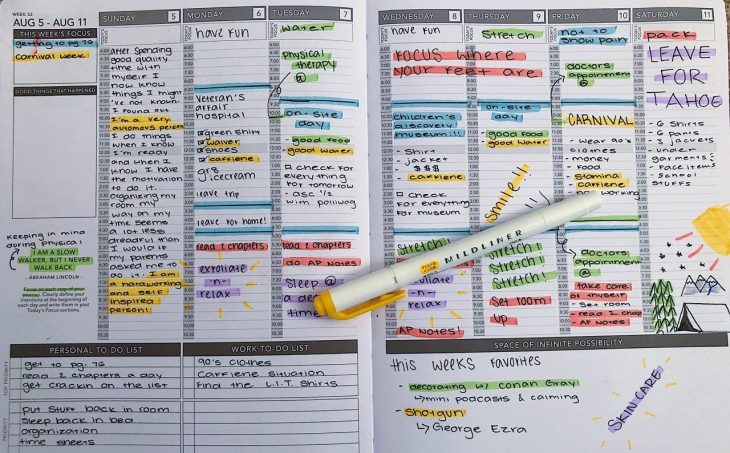 WEEK 32
AUG 5 - AUG 11
THIS WEEK'S FOCUS
getting to pg. 76
carnival week
GOOD THINGS THAT HAPPENED
Keeping in mind
during physical
I AM A SLOW
WALKER, BUT I NEVER
WALK BACK.
- ABRAHAM LINCOLN -
Focus on each step of your
journey. Clearly define your
intentions at the beginning of
each day and write them in your
Today's Focus sections.
SUNDAY 5
after spending
good quality
time with
myself I
now know
things I might
've not known.
I found out
I'm a very
automovs person
I do things
when I know
I'm ready
and when I
know I have
the motivation
to do it.
organizing
my room my
way on my
time seems
a lot less
dreadful than
I would if
my parents
asked me to
do it. I am
a hardworking
and self
inspired
person!
MONDAY 6
have fun
veteran's
affair
hospital
green shirt
waiver
shoes
caffiene
gr8
icecream
leave trip
leave for home!
read 2 chapters
exfoliate
-n-
relax
TUESDAY 7
water
physical
therapy
@
on-site
day
good food
good water
check for
everything
for tomorrow
- asc 1/2
with polliwog
read 2 chapters
do AP Notes
sleep @
a de
time
WEDNESDAY 8
have fun
FOCUS where
your feet are
children's
discovery
museum!!!
- shirt
- jacket
- $$$
- caffiene
check
for everything
for museum
stretch!
exfoliate
-n-
relax
AP Notes!
THURSDAY 9
stretch
on-site
day
good food
good water
smile 4
stretch!
stretch!
stretch!
set room
up
FRIDAY 10
not to
show pain
doctors
appointment
@
CARNIVAL
- wear 90's
clothes
- money
- food
- stamina
- caffiene
no working
doctors
appointment
@
take care
of myself
- set room
- read 2 chap
- AP Notes!
SATURDAY 11
pack
LEAVE
FOR
TAHOE
- 6 shirts
- 6 pants
- 3 jackets
- under
garments
- face items
- school
stuffs
MILDLINER
PERSONAL TO-DO LIST
TOP PRIORITY
get to pg. 76
read 2 chapters a day
get crackin on the list
PRIORITY
put stuff back in room
sleep back in bed
organization
time sheets
WORK TO-DO LIST
90's clothes
caffiene situation
find the L.I.T. shirts
SPACE OF INFINITE POSSIBILITY
this weeks favorites
- decorating w/ Conan Gray
↳ mini podcasts & calming
- shotgun
↳ George Ezra
SKIN CARE